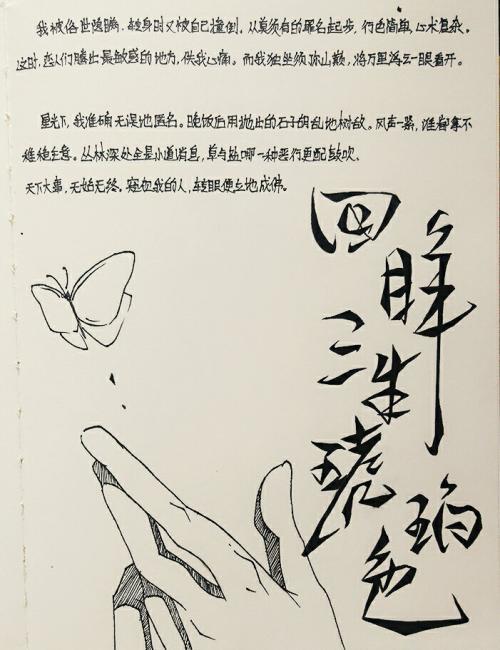 我被俗世隐瞒，转身时又被自己撞倒。从莫须有的罪名起步，行色简单，心术复杂。
这时，恋人们腾出最敏感的地方，供我心痛。而我独坐须弥山巅，将万里浮云一眼看开。
星光下，我准确无误地匿名。晚饭后用抛出的石子胡乱地树敌。风声一紧，谁都拿不
稳主意。丛林深处全是小道消息，草与盐哪一种恶行更配鼓吹、
天下大事，无始无终。窥视我的人，转眼便立地成佛。
回眸
三生
琥珀
色